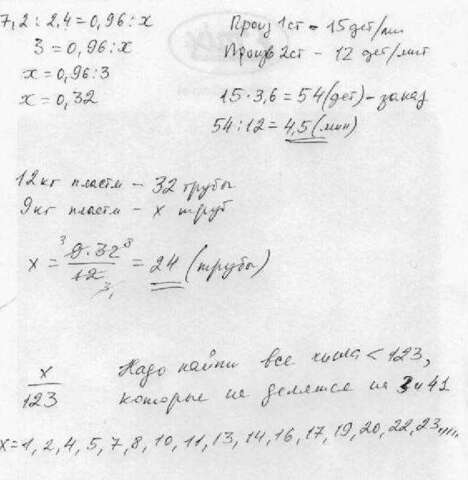 7,2 : 2,4 = 0,96 : x
3 = 0,96 : x
x = 0,96 : 3
x = 0,32
Произ 1 ст - 15 дет/мин
Произв 2 ст - 12 дет/мин
15 · 3,6 = 54 (дет) - заказ
54 : 12 = 4,5 (мин)
12 кг пластм - 32 трубы
9 кг пластм - x труб
x = 9·32/12 = 24 (трубы)
x/123
Надо найти все числа < 123,
которые не делятся на 3 и 41
x = 1, 2, 4, 5, 7, 8, 10, 11, 13, 14, 16, 17, 19, 20, 22, 23,...